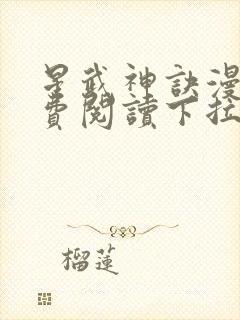 星武神訣漫
費閱讀下拉
榴蓮